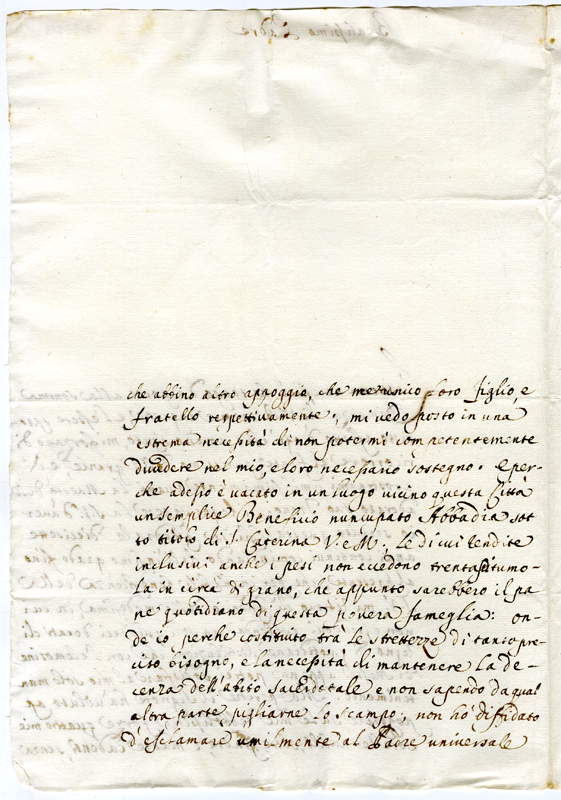 che abbino altro appoggio, che me unico loro figlio, e
fratello respettivamente, mi vedo posto in una
estrema necessità di non potermi competentemente
dividere nel mio, e loro necessario sostegno. e per-
che adesso è vacato in un luogo vicino questa Città
un semplice Beneficio nuncupato Abbadia sot
to titolo di S. Caterina V. e M., le di cui rendite
inclusivi anche i pesi non eccedono trenta tumo-
la in circa di grano, che appunto sarebbero il pa
ne quotidiano di questa povera fameglia: on-
de io perche costituito tra le strettezze di tanto pre-
ciso bisogno, e la necessità di mantenere la de-
cenza dell'abito sacerdotale e non sapendo da qual
altra parte pigliarne lo scampo, non hò diffidato
d'esclamare umilmente al Padre universale